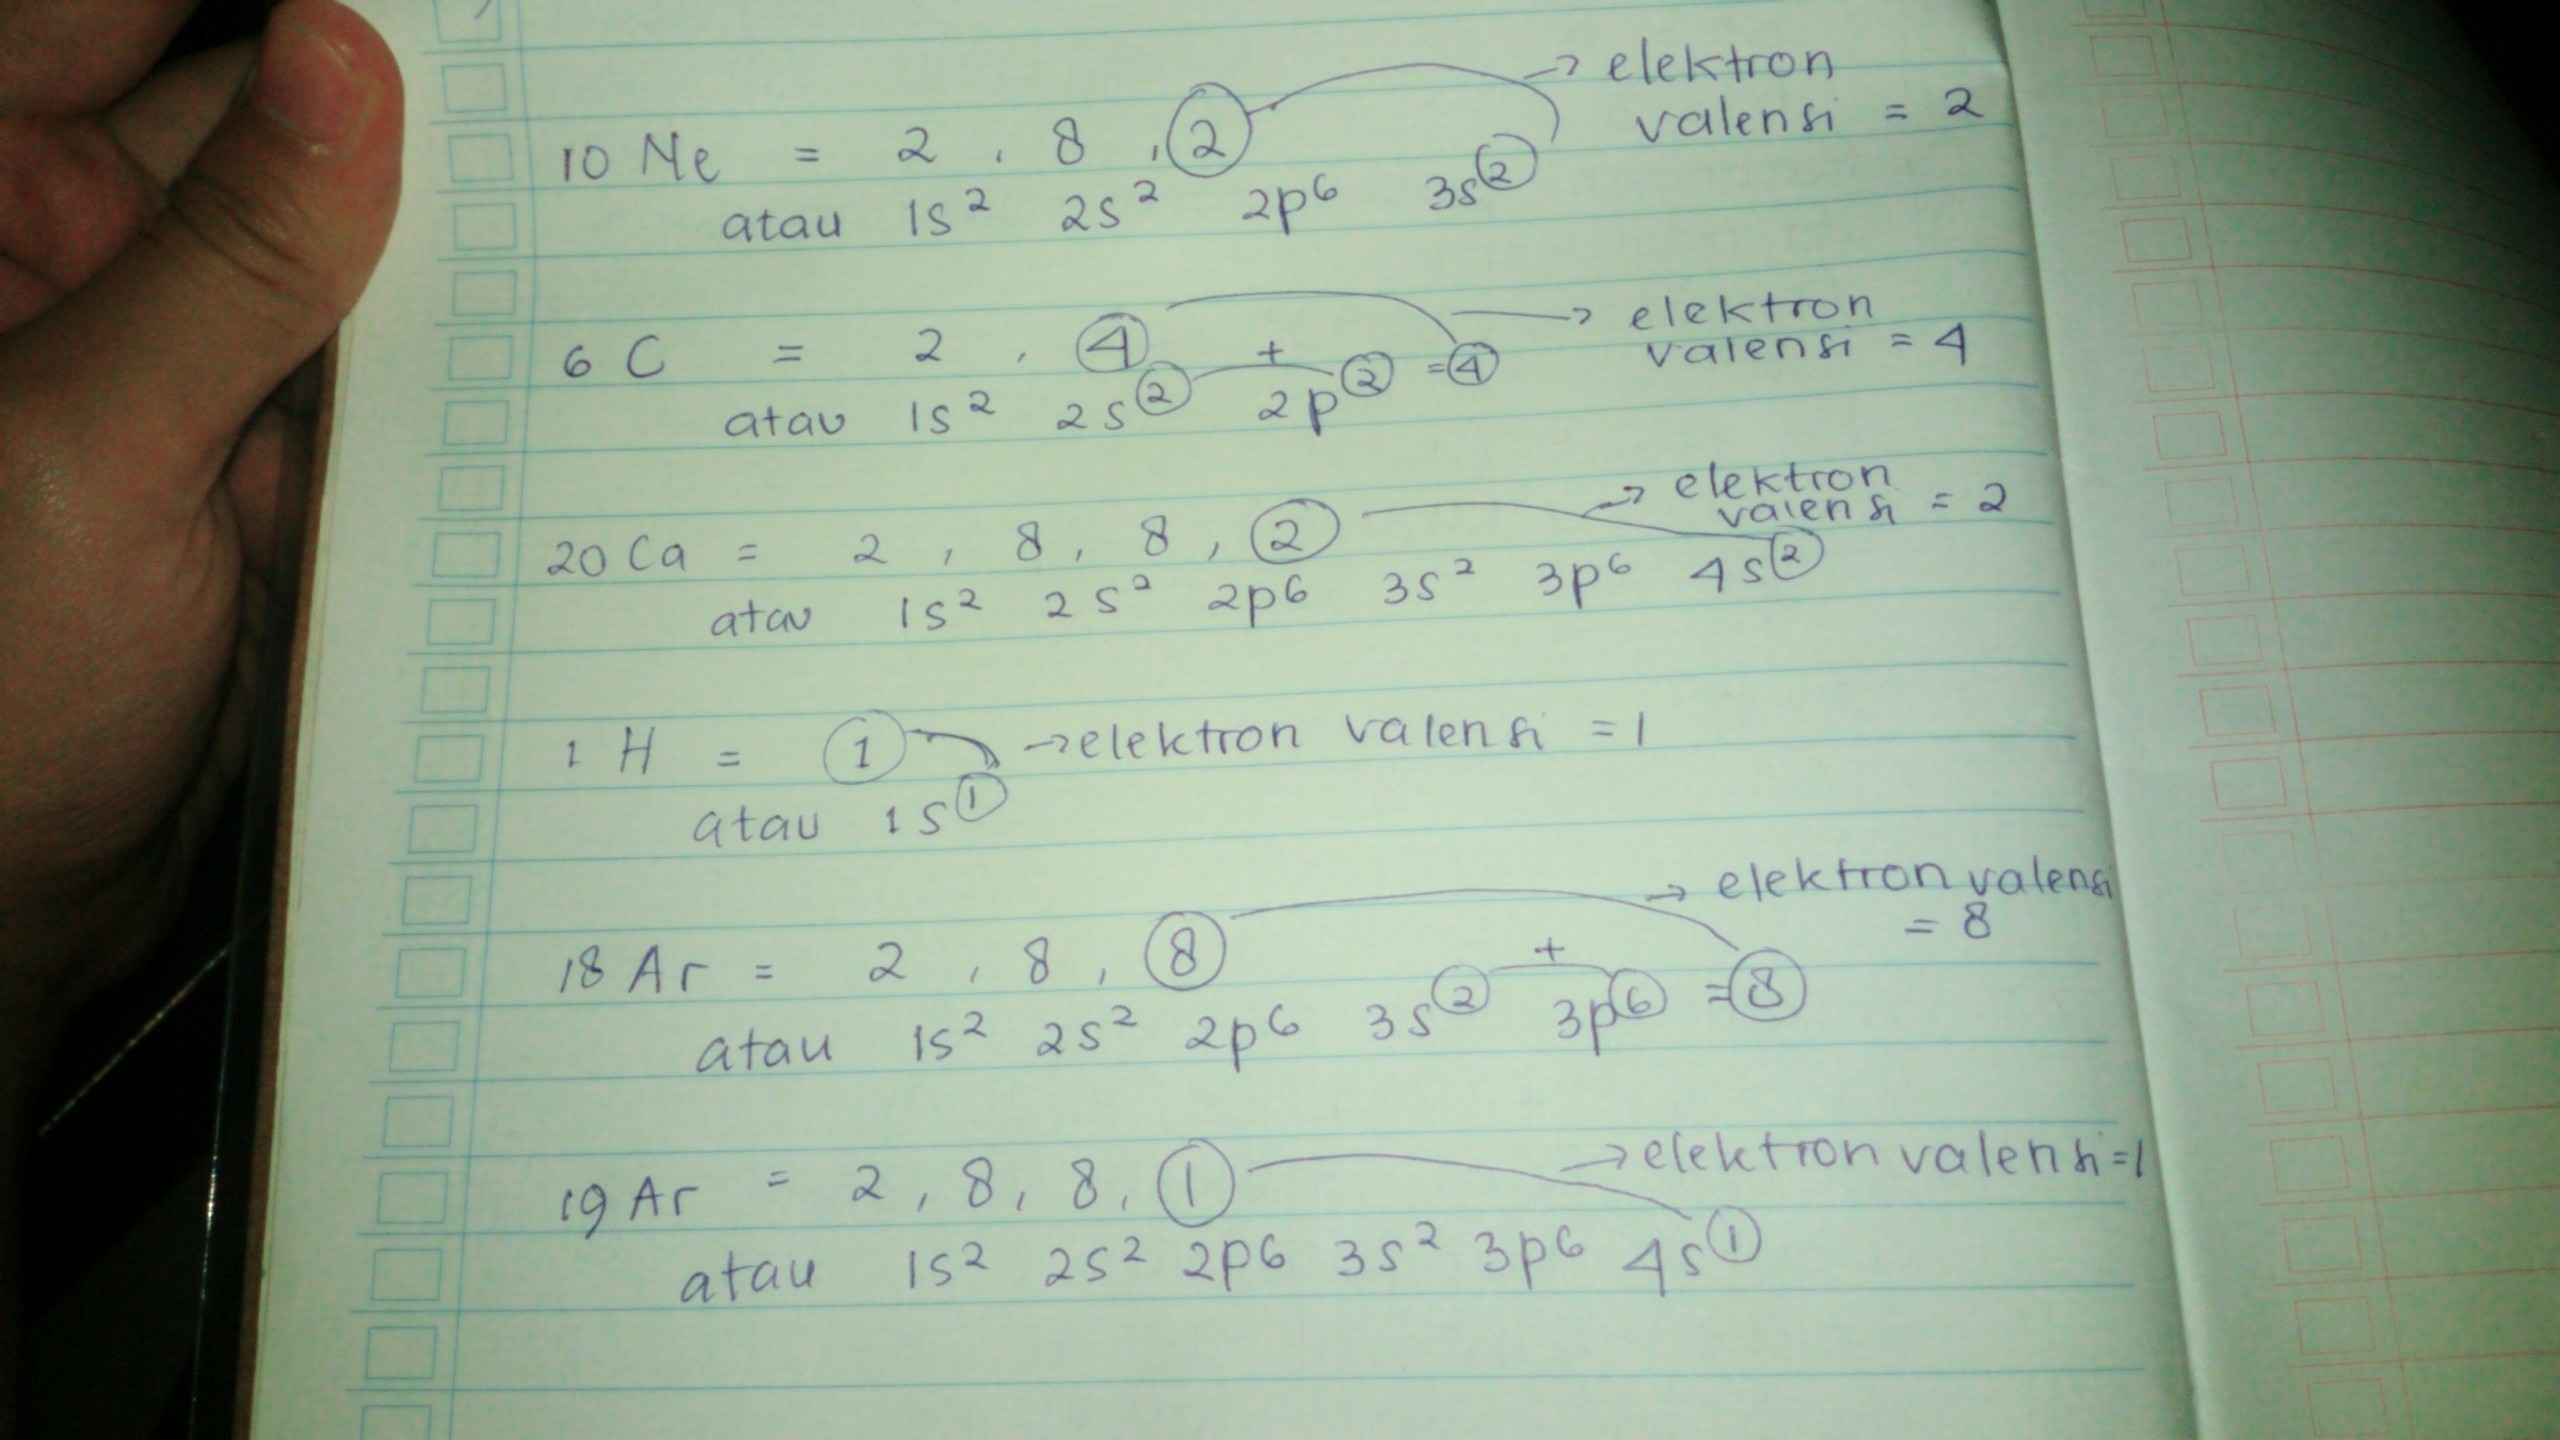 10 Ne = 2 , 8 , 2 → elektron
valensi = 2
atau 1s² 2s² 2p⁶ 3s²
6 C = 2 , 4 → elektron
valensi = 4
atau 1s² 2s² + 2p² = 4
20 Ca = 2 , 8 , 8 , 2 → elektron
valensi = 2
atau 1s² 2s² 2p⁶ 3s² 3p⁶ 4s²
1 H = 1 → elektron valensi = 1
atau 1s¹
18 Ar = 2 , 8 , 8 → elektron valensi
= 8
atau 1s² 2s² 2p⁶ 3s² + 3p⁶ = 8
19 Ar = 2 , 8 , 8 , 1 → elektron valensi = 1
atau 1s² 2s² 2p⁶ 3s² 3p⁶ 4s¹